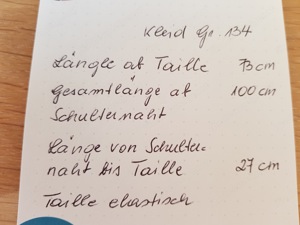 Kleid Gr. 134
Längle ab Taille 73 cm
Gesamtlänge ab 100 cm
Schulternaht
Länge von Schulter-
naht bis Taille 27 cm
Taille elastisch